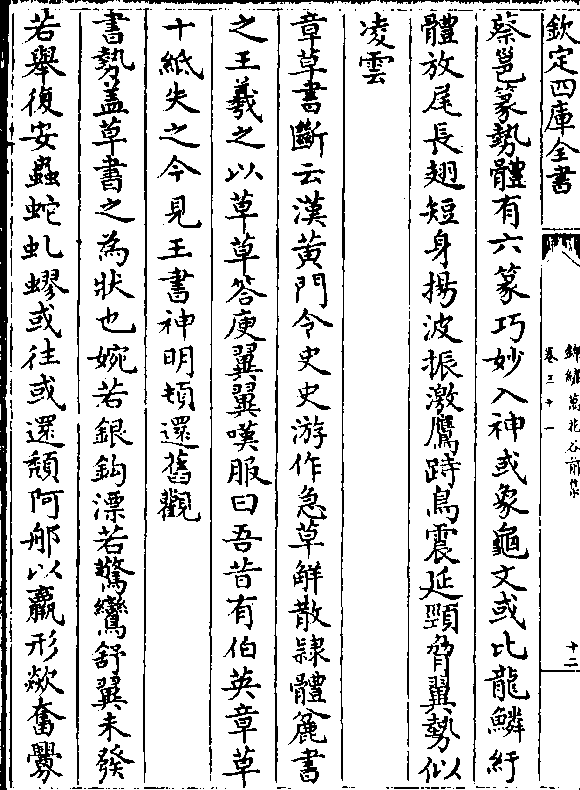 欽定四庫全書
錦繡萬花谷前集
卷三十一
十二
蔡邕篆勢體有六篆巧妙入神或象龜文或比龍鱗紆
體放尾長翅短身揚波振激鷹跱鳥震延頸脅翼勢似
凌雲
章草書斷云漢黃門令史史游作急草解散隸體麄書
之王羲之以草草答庾翼翼嘆服曰吾昔有伯英章草
十紙失之今見王書神明頓還舊觀
書勢盖草書之為狀也婉若銀鈎漂若驚鸞舒翼未發
若舉復安蟲蛇虬蟉或往或還頹阿郍以羸形欻奮舋